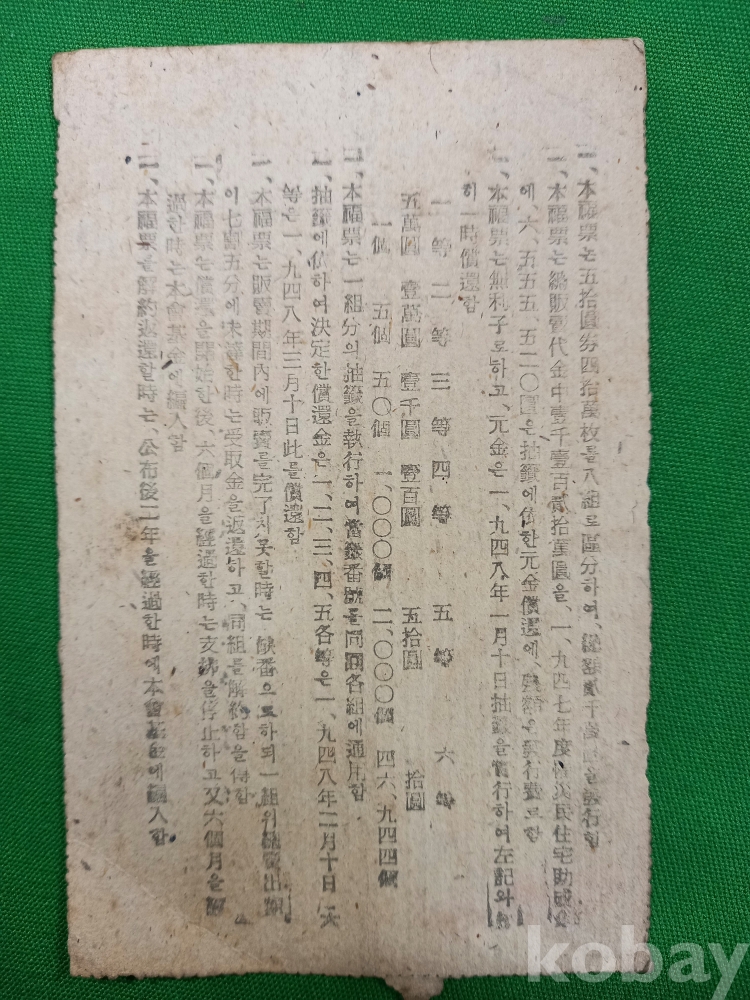 一、本福票는五拾圓券四拾萬枚를八組로區分하여、總額貳千萬圓을發行함
一、本福票는總販賣代金中壹千壹百貳拾萬圓을、一、九四七年度罹災民住宅助成
에、六、五五五、五二〇圓은抽籤에依한元金償還에、殘額은發行費로함
一、本福票는無利子로하고、元金은一、九四八年一月十日抽籤을實行하여左記와
히一時償還함
一等 二等 三等 四等 五等 六等
五萬圓 壹萬圓 壹千圓 壹百圓 五拾圓 拾圓
一個 五個 五〇個 一、〇〇〇個 二、〇〇〇個 四六、九四四個
一、本福票는一組分의抽籤을執行하여當籤番號를同個各組에通用함
一、抽籤에依하여決定한償還金은一、二、三、四、五各等은一、九四八年二月十日、六
等은一、九四八年三月十日此를償還함
一、本福票는販賣期間內에販賣를完了치못할時는 缺番으로하되一組의
이七割五分에未達한時는受取金을返還하고、同組를解約함을得함
一、本福票는償還을開始한後、六個月을經過한時는支拂을停止하고又六個月을經
過한時는本會基金에編入함
一、本福票를解約返還할時는、公布後二年을經過한時에本會基金에編入함
kobay